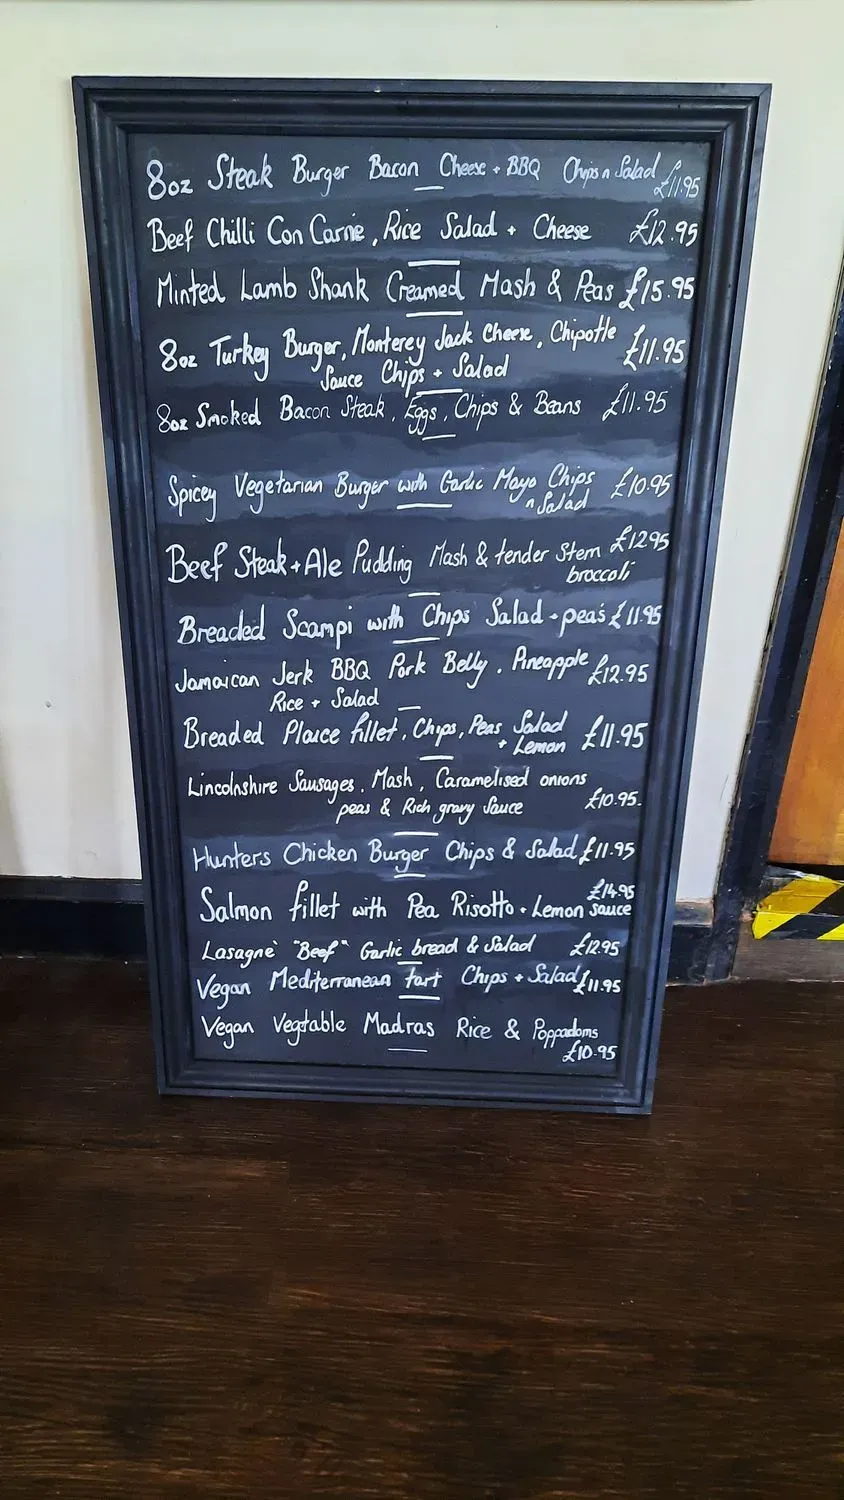 8oz Steak Burger Bacon Cheese + BBQ Chips n Salad £11.95
Beef Chilli Con Carne, Rice Salad + Cheese £12.95
Minted Lamb Shank Creamed Mash & Peas £15.95
8oz Turkey Burger, Monterey Jack Cheese, Chipotle £11.95
Sauce Chips + Salad
8oz Smoked Bacon Steak, Eggs, Chips & Beans £11.95
Spicey Vegetarian Burger with Garlic Mayo Chips £10.95
n Salad
Beef Steak + Ale Pudding Mash & tender stem £12.95
broccoli
Breaded Scampi with Chips Salad + pea's £11.95
Jamaican Jerk BBQ Pork Belly, Pineapple £12.95
Rice + Salad
Breaded Plaice fillet, Chips, Peas Salad £11.95
+ Lemon
Lincolnshire Sausages, Mash, Caramelised onions
peas & Rich gravy Sauce £10.95
Hunters Chicken Burger Chips & Salad £11.95
Salmon fillet with Pea Risotto + Lemon sauce £14.95
Lasagne' "Beef" Garlic bread & Salad £12.95
Vegan Mediterranean tart Chips + Salad £11.95
Vegan Vegtable Madras Rice & Poppadoms
£10.95